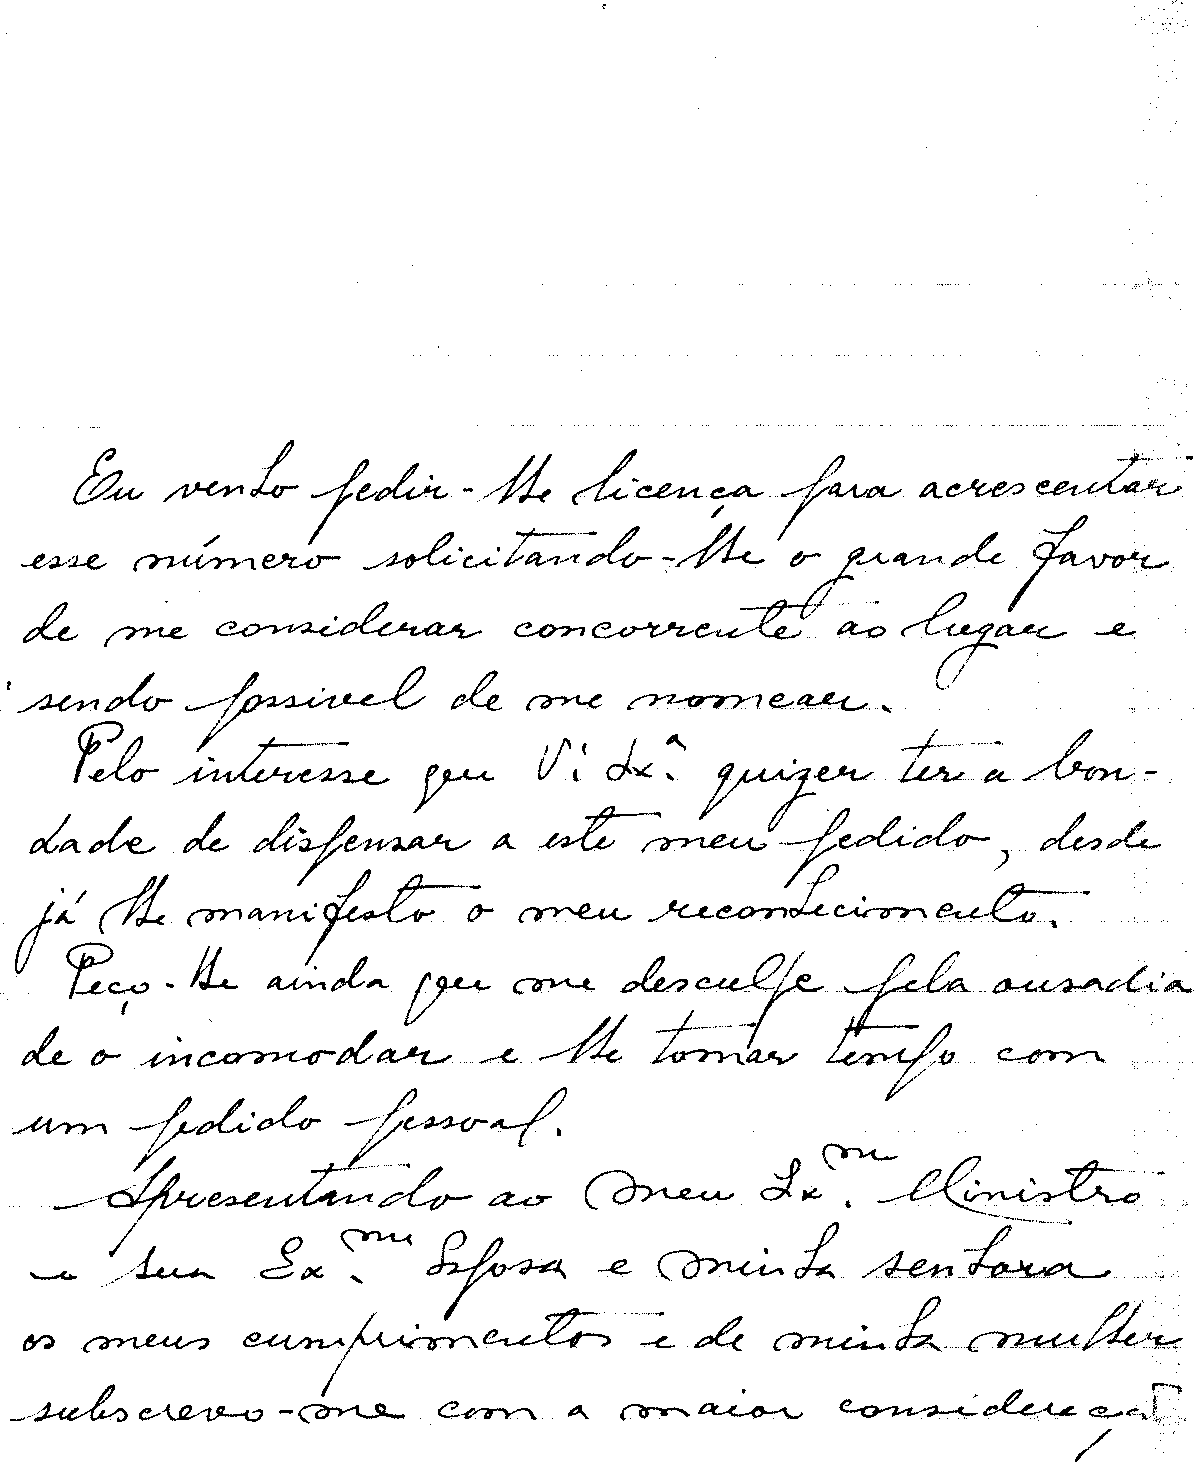 Eu venho pedir-lhe licença para acrescentar
esse número solicitando-lhe o grande favor
de me considerar concorrente ao lugar e
sendo possivel de me nomear.
Pelo interesse que V. Ex.ª quizer ter a bon-
dade de dispensar a este meu pedido, desde
já lhe manifesto o meu reconhecimento.
Peço-lhe ainda que me desculpe pela ousadia
de o incomodar e lhe tomar tempo com
um pedido pessoal.
Apresentando ao meu Ex.mo Ministro
e sua Ex.ma Esposa e minha senhora
os meus cumprimentos e de minha mulher
subscrevo-me com a maior consideraçã